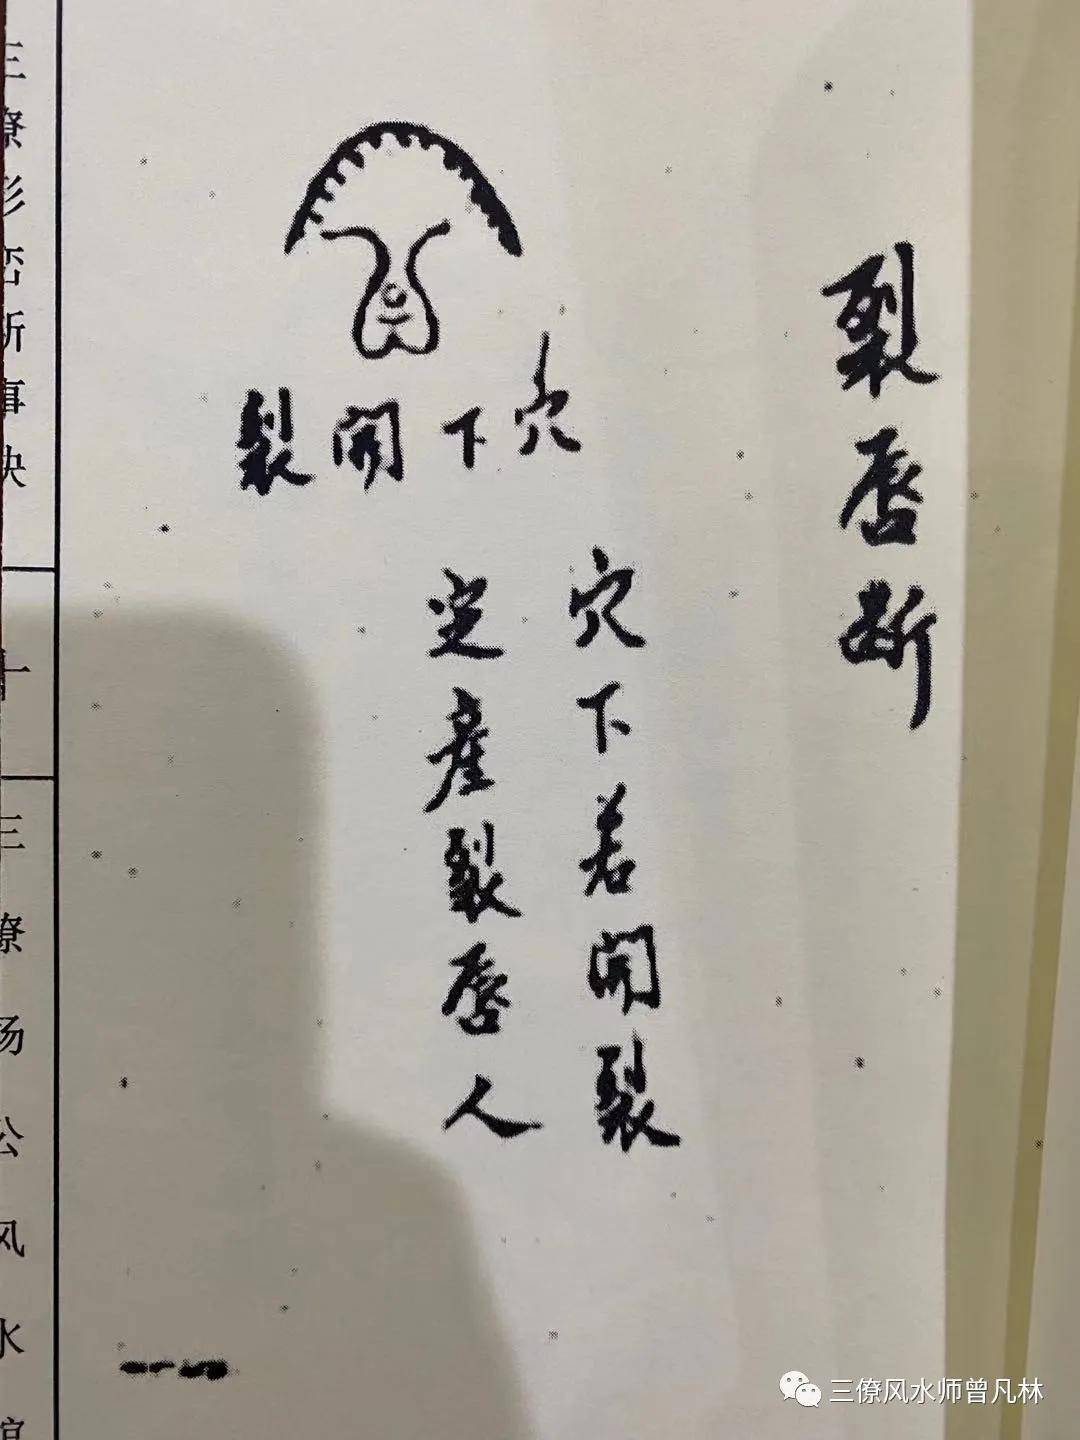 裂唇断
穴下開裂
穴下若開裂
定產裂唇人
三僚形峦断事诀
十一
三僚杨公风水馆
三僚风水师曾凡林